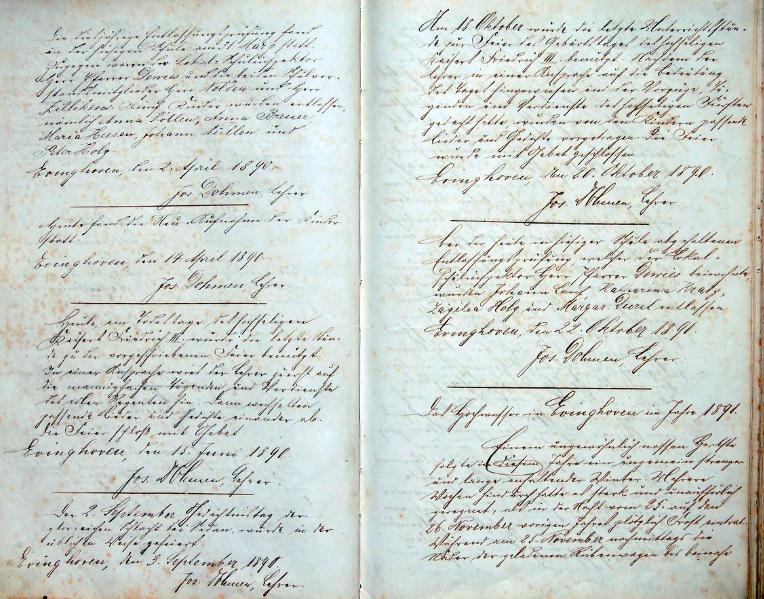 Die diesjährige Entlassungsprüfung fand
in hiesiger Schule am 31 März statt.
Zugegen waren der Lokal-Schulinspektor
Herr Pfarrer Dercies und die beiden Schulvor-
standsmitglieder Herr Nolden und Herr
Zillikens. Fünf Kinder wurden entlassen,
nämlich Anna Pollen, Anna Breuer,
Maria Heesen, Johann Füllen und
Peter Holz.
Evinghoven, den 2. April 1890.
Jos. Dohmen, Lehrer.
Heute fand die Neu-Aufnahme der Kinder
statt.
Evinghoven, den 14 April 1890.
Jos. Dohmen, Lehrer
Heute, am Todestage des hochseligen
Kaisers Friedrich III, wurde die letzte Stun-
de zu der vorgeschriebenen Feier benützt.
In einer Ansprache wies der Lehrer zuerst auf
die mannigfachen Tugenden und Verdienste
des edlen Regenten hin. Dann wechselten
passende Lieder und Gedichte einander ab.
Die Feier schloß mit Gebet.
Evinghoven, den 15. Juni 1890.
Jos. Dohmen, Lehrer
Der 2. September Gedächtnistag der
glorreichen Schlacht bei Sedan, wurde in der
üblichen Weise gefeiert.
Evinghoven, den 3. September 1890.
Jos. Dohmen, Lehrer.
Am 18 Oktober wurde die letzte Unterrichtsstun-
de zur Feier des Geburtstages des hochseligen
Kaisers Friedrich III. benützt. Nachdem der
Lehrer in einer Ansprache auf die Bedeutung
des Tages hingewiesen und der Vorzüge, Tu-
genden und Verdienste des hochseligen Fürsten
gedacht hatte, wurden von den Kindern passende
Lieder und Gedichte vorgetragen. Die Feier
wurde mit Gebet geschlossen.
Evinghoven, den 20. Oktober 1890.
Jos. Dohmen, Lehrer
Bei der heute in hiesiger Schule abgehaltenen
Entlassungsprüfung, welcher der Lokal-
Schulinspektor Herr Pfarrer Dercies beiwohnte,
wurden Johann Katharina
Holz und Margar. entlassen
Evinghoven, den 22. Oktober 1890.
Jos. Dohmen, Lehrer.
Das Hochwasser in Evinghoven im Jahre 1891.
Einem ungewöhnlich nassen Herbste
folgte in diesem Jahre ein ungemein strenger
und lange anhaltender Winter. Mehrere
Wochen hindurch hatte es stark und unaufhörlich
geregnet, als in der Nacht vom 25. auf den
26. November vorigen Jahres plötzlich Frost eintrat.
Während am 25. November nachmittags die
Räder der geladenen Rübenwagen bis beinahe